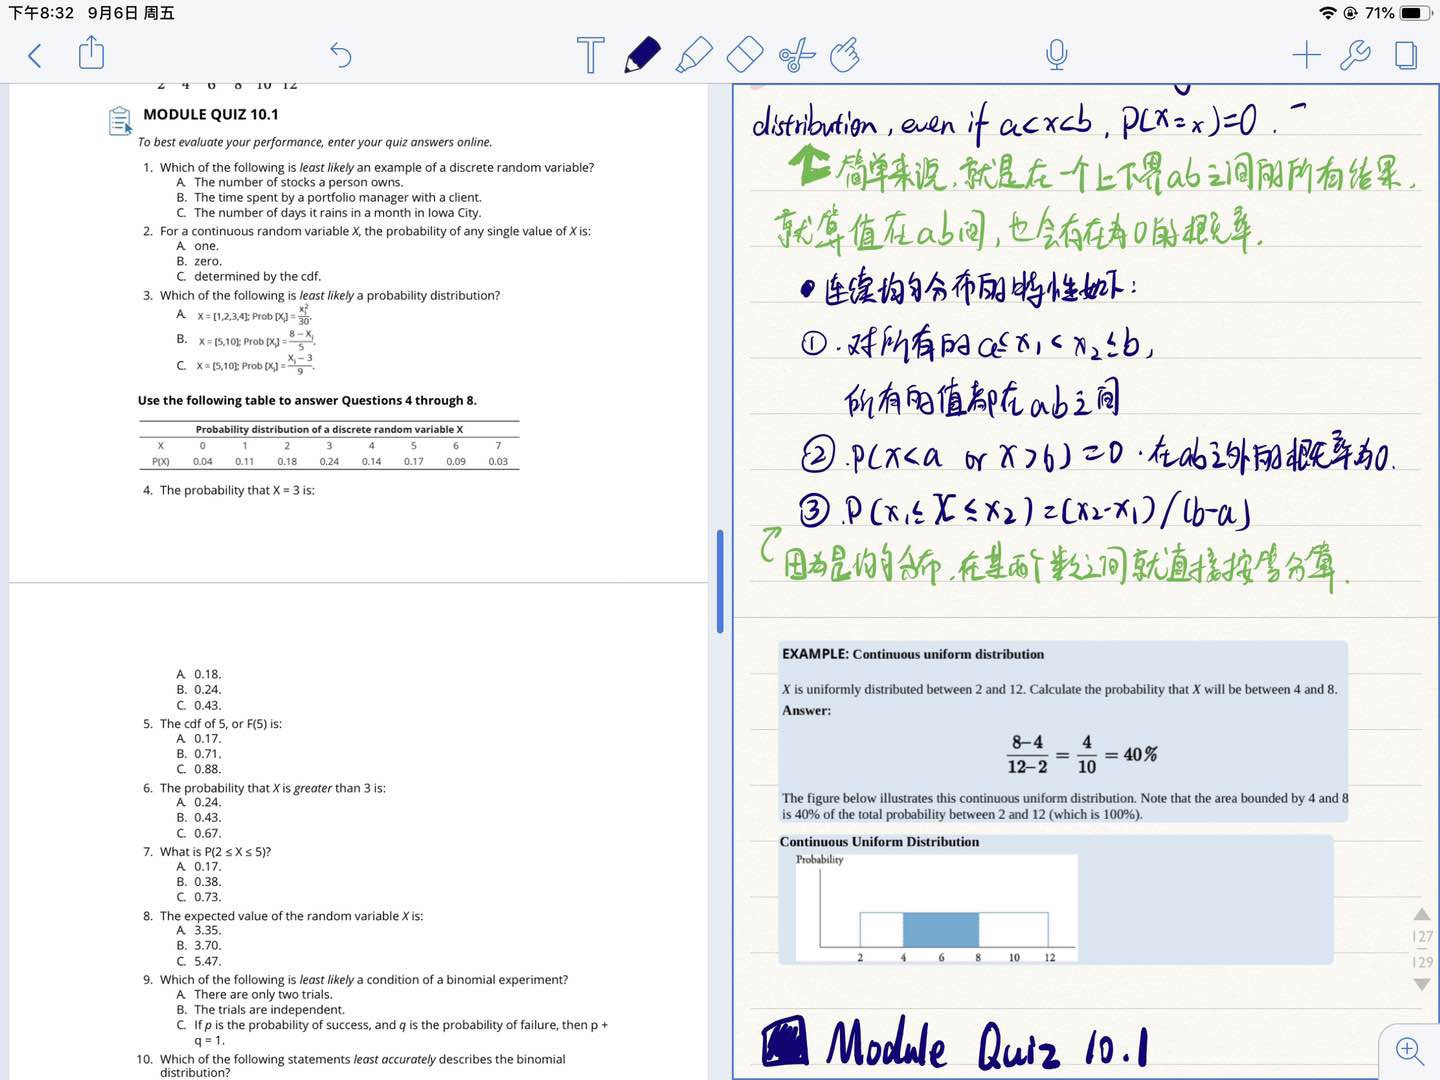 下午8:32 9月6日 周五
71%
2 4 6 8 10 12
MODULE QUIZ 10.1
To best evaluate your performance, enter your quiz answers online.
1. Which of the following is least likely an example of a discrete random variable?
A. The number of stocks a person owns.
B. The time spent by a portfolio manager with a client.
C. The number of days it rains in a month in Iowa City.
2. For a continuous random variable X, the probability of any single value of X is:
A. one.
B. zero.
C. determined by the cdf.
3. Which of the following is least likely a probability distribution?
A. X = [1,2,3,4]; Prob [Xᵢ] = xᵢ²/30.
B. X = [5,10]; Prob [Xᵢ] = 8 − Xᵢ/5.
C. X = [5,10]; Prob [Xᵢ] = Xᵢ − 3/9.
Use the following table to answer Questions 4 through 8.
Probability distribution of a discrete random variable X
X 0 1 2 3 4 5 6 7
P(X) 0.04 0.11 0.18 0.24 0.14 0.17 0.09 0.03
4. The probability that X = 3 is:
A. 0.18.
B. 0.24.
C. 0.43.
5. The cdf of 5, or F(5) is:
A. 0.17.
B. 0.71.
C. 0.88.
6. The probability that X is greater than 3 is:
A. 0.24.
B. 0.43.
C. 0.67.
7. What is P(2 ≤ X ≤ 5)?
A. 0.17.
B. 0.38.
C. 0.73.
8. The expected value of the random variable X is:
A. 3.35.
B. 3.70.
C. 5.47.
9. Which of the following is least likely a condition of a binomial experiment?
A. There are only two trials.
B. The trials are independent.
C. If p is the probability of success, and q is the probability of failure, then p +
q = 1.
10. Which of the following statements least accurately describes the binomial
distribution?
distribution, even if a<x<b, P(X=x)=0.
简单来说,就是在一个上下界ab之间的所有结果,
就算值在ab间,也会存在为0的概率.
• 连续均匀分布的特性如下:
①. 对所有的a≤x₁<x₂≤b,
所有的值都在ab之间
②. P(X<a or X>b)=0 · 在ab之外的概率为0.
③. P(x₁≤X≤x₂)=(x₂-x₁)/(b-a)
因为是均匀分布,在某两个数之间就直接按等分算.
EXAMPLE: Continuous uniform distribution
X is uniformly distributed between 2 and 12. Calculate the probability that X will be between 4 and 8.
Answer:
8−4/12−2 = 4/10 = 40%
The figure below illustrates this continuous uniform distribution. Note that the area bounded by 4 and 8
is 40% of the total probability between 2 and 12 (which is 100%).
Continuous Uniform Distribution
Probability
2 4 6 8 10 12
127
129
Module Quiz 10.1